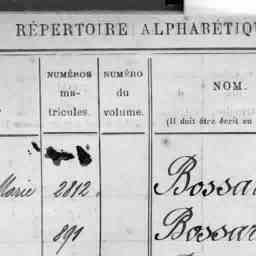 RÉPERTOIRE ALPHABÉTIQU
NUMÉROS
ma-
tricules.
NUMÉRO
du
volume.
NOM.
(Il doit être écrit en
Marie 2812 Bossa
891 Bossar